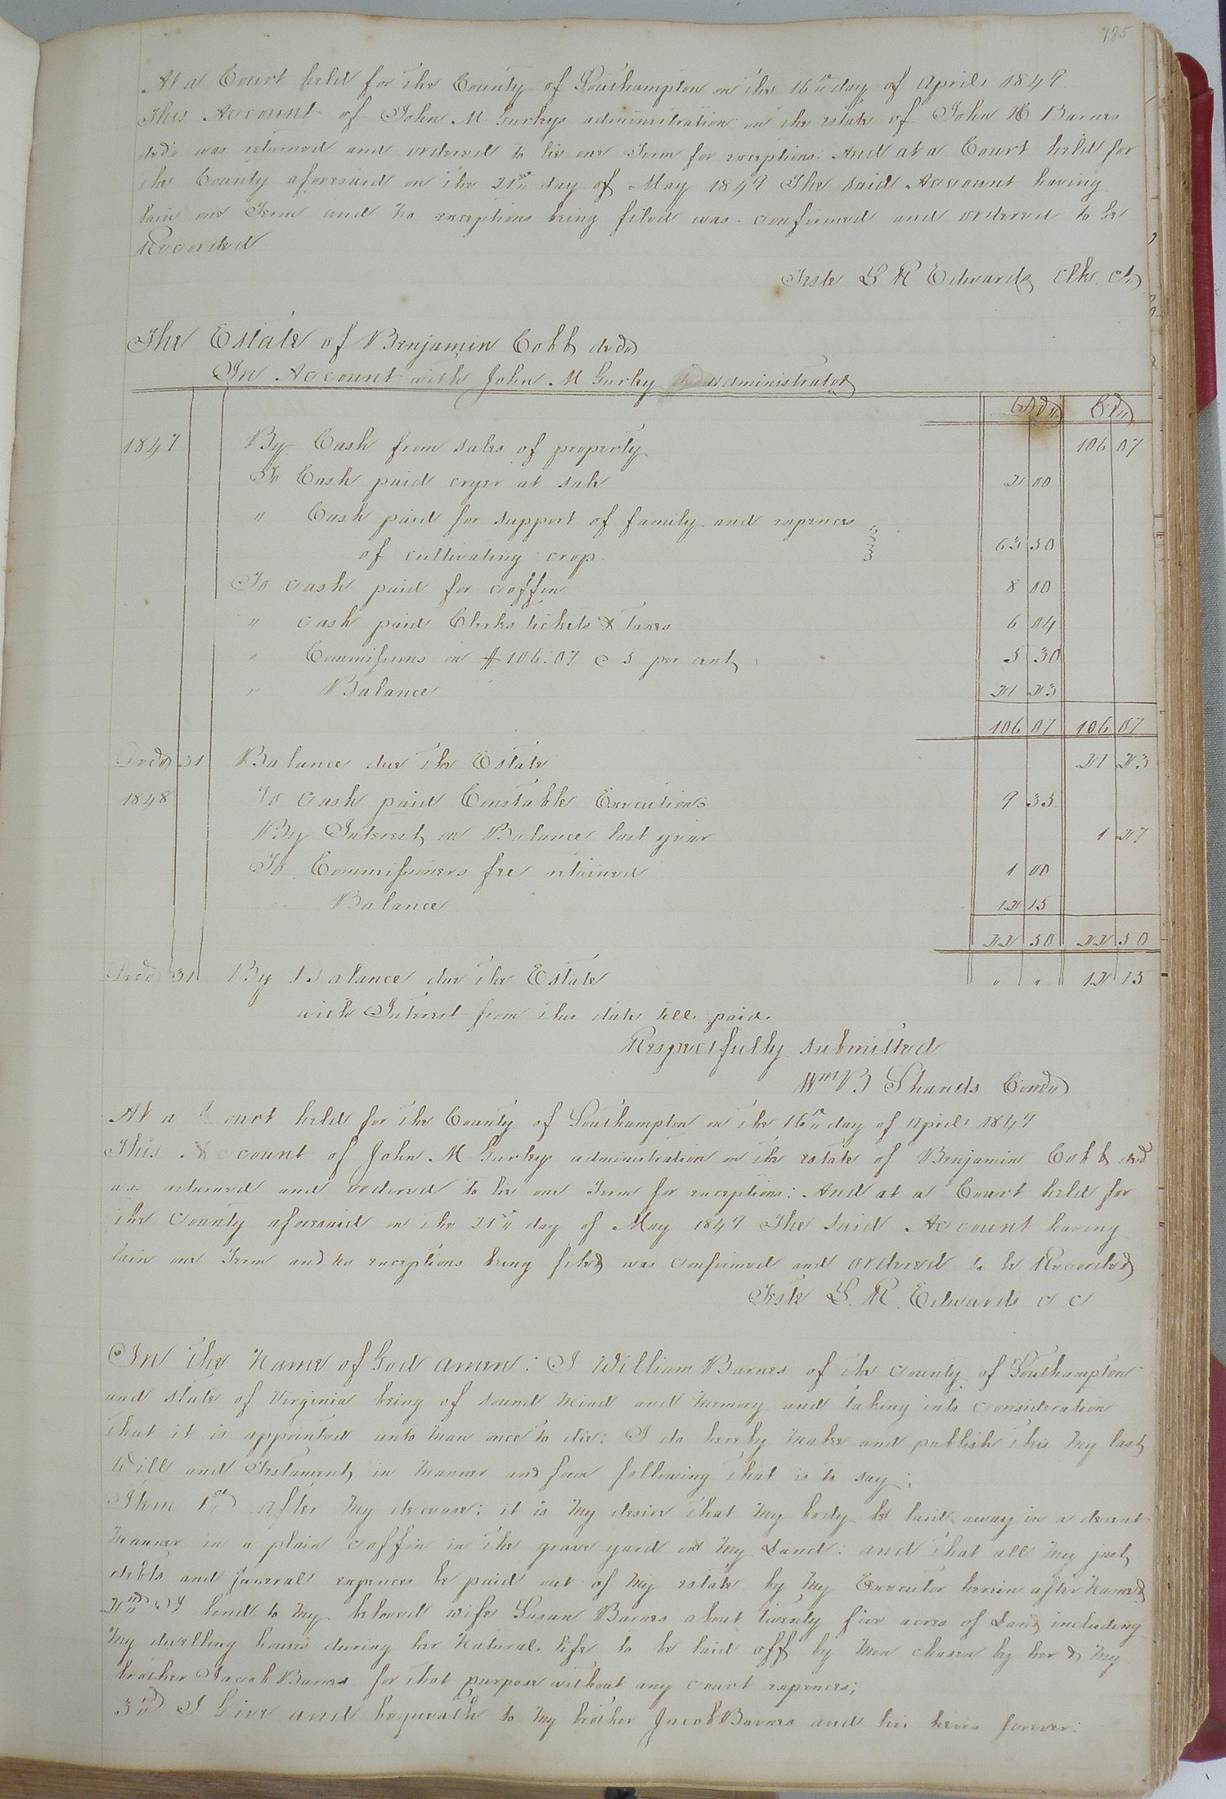 185
At a Court held for the County of Southampton on the 16th day of April 1849
This Account of John M Gurleys administration on the estate of John H Barnes
decd was returned and ordered to lie one Term for exceptions And at a Court held for
the County aforesaid on the 21st day of May 1849 The said Account having
lain one Term and no exceptions being filed was confirmed and ordered to be
Recorded
Teste L R Edwards Clk. Ct
The Estate of Benjamin Cobb decd
In Account with John M Gurley administrator
1847 By Cash from sales of property 106 07
To Cash paid cryer at sale 2 00
" Cash paid for support of family and expences
of cultivating crop 63 50
To cash paid for coffin 8 00
" cash paid Clerks tickets & Taxes 6 04
" Commissions on $106.07 @ 5 per cent 5 30
" Balance 21 23
106 07 106 07
Decd 31 Balance due the Estate 21 23
1848 To cash paid Constable Executions 9 35
By Interest on Balance last year 1 27
To Commissioners fee retained 1 00
Balance 12 15
22 50 22 50
Decd 31 By Balance due the Estate " " 12 15
with Interest from this date till paid.
Respectfully submitted
Wm B Shands Comr
At a Court held for the County of Southampton on the 16th day of April 1849
This Account of John M Gurleys administration on the estate of Benjamin Cobb decd
was returned and ordered to lie one Term for exceptions: And at a Court held for
the County aforesaid on the 21st day of May 1849 The said Account having
lain one Term and no exceptions being filed was confirmed and ordered to be Recorded
Teste L. R. Edwards C C
In the Name of God amen: I William Barnes of the County of Southampton
and state of Virginia being of sound Mind and Memory and taking into consideration
that it is appointed unto Man once to die: I do hereby Make and publish this My last
Will and Testament in Manner and form following that is to say:
Item 1st after My decease: it is My desire that My body be laid away in a decent
Manner in a plain coffin in the grave yard on My Land: and that all My just
debts and funeral expences be paid out of My estate by My Executor herein after Named
2nd I lend to My beloved wife Susan Barnes about twenty five acres of Land including
My dwelling houses during her Natural life to be laid off by Men chosen by her & My
brother Jacob Barnes for that purpose without any court expences;
3rd I Give and bequeath to My brother Jacob Barnes and his heirs forever: